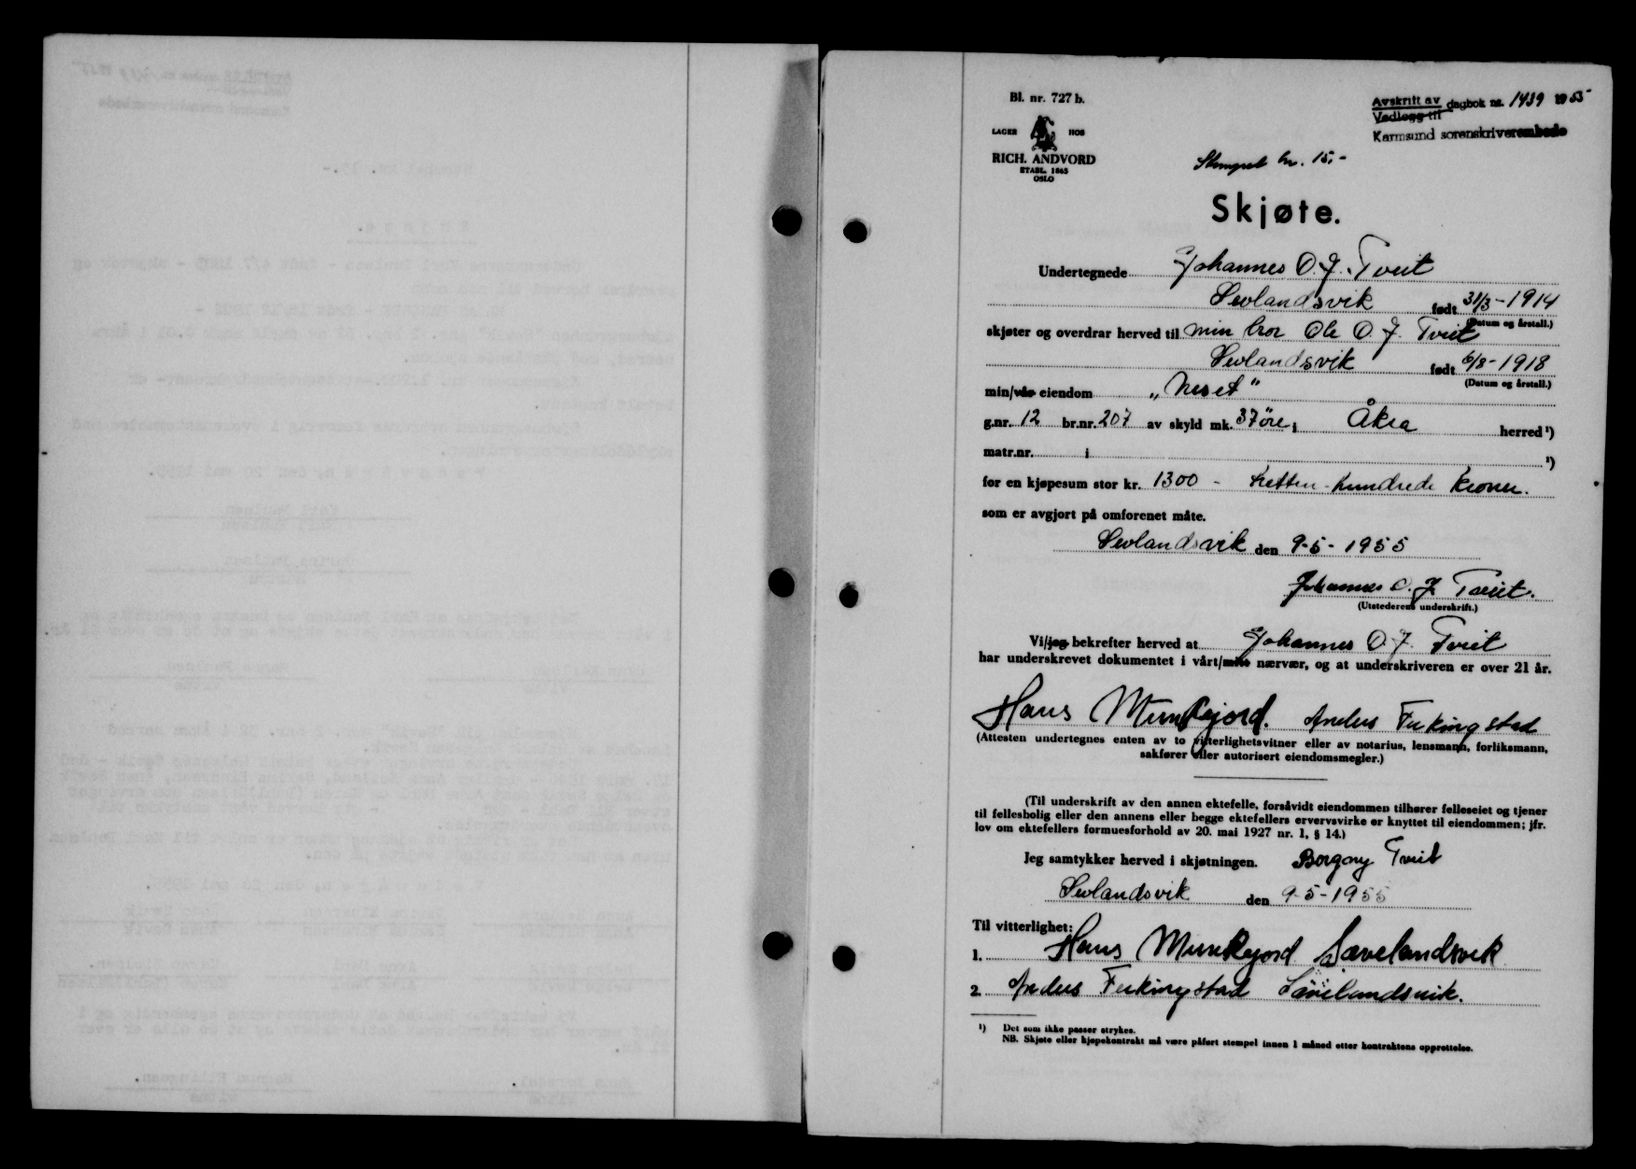 Bl. nr. 727 b.
LAGER HOS
RICH. ANDVORD
ETABL. 1865
OSLO
Avskrift av dagbok nr. 1439 1955
Vedlegg til
Karmsund sorenskriverembede
Stempel kr. 15,-
Skjøte.
Undertegnede Johannes O. J. Tveit
Sevlandsvik født 31/3-1914
(Datum og årstall.)
skjøter og overdrar herved til min bror Ole O J. Tveit
Sevlandsvik født 6/8-1918
(Datum og årstall.)
min/vår eiendom „Neset"
g.nr. 12 br.nr. 207 av skyld mk. 37 øre i Åkra herred ¹)
matr.nr. i ¹)
for en kjøpesum stor kr. 1300 - tretten-hundrede kroner.
som er avgjort på omforenet måte.
Sevlandsvik den 9-5-1955
Johannes O. J. Tveit.
(Utstederens underskrift.)
Vi/jeg bekrefter herved at Johannes O J. Tveit
har underskrevet dokumentet i vårt/mitt nærvær, og at underskriveren er over 21 år.
Hans Munkejord. Anders Ferkingstad
(Attesten undertegnes enten av to vitterlighetsvitner eller av notarius, lensmann, forliksmann,
sakfører eller autorisert eiendomsmegler.)
(Til underskrift av den annen ektefelle, forsåvidt eiendommen tilhører felleseiet og tjener
til fellesbolig eller den annens eller begge ektefellers ervervsvirke er knyttet til eiendommen; jfr.
lov om ektefellers formuesforhold av 20. mai 1927 nr. 1, § 14.)
Jeg samtykker herved i skjøtningen. Borgny Tveit
Sevlandsvik den 9-5-1955
Til vitterlighet:
1. Hans Munkejord Sævelandsvik
2. Anders Ferkingstad Sævelandsvik.
¹) Det som ikke passer strykes.
NB. Skjøte eller kjøpekontrakt må være påført stempel innen 1 måned etter kontraktens opprettelse.